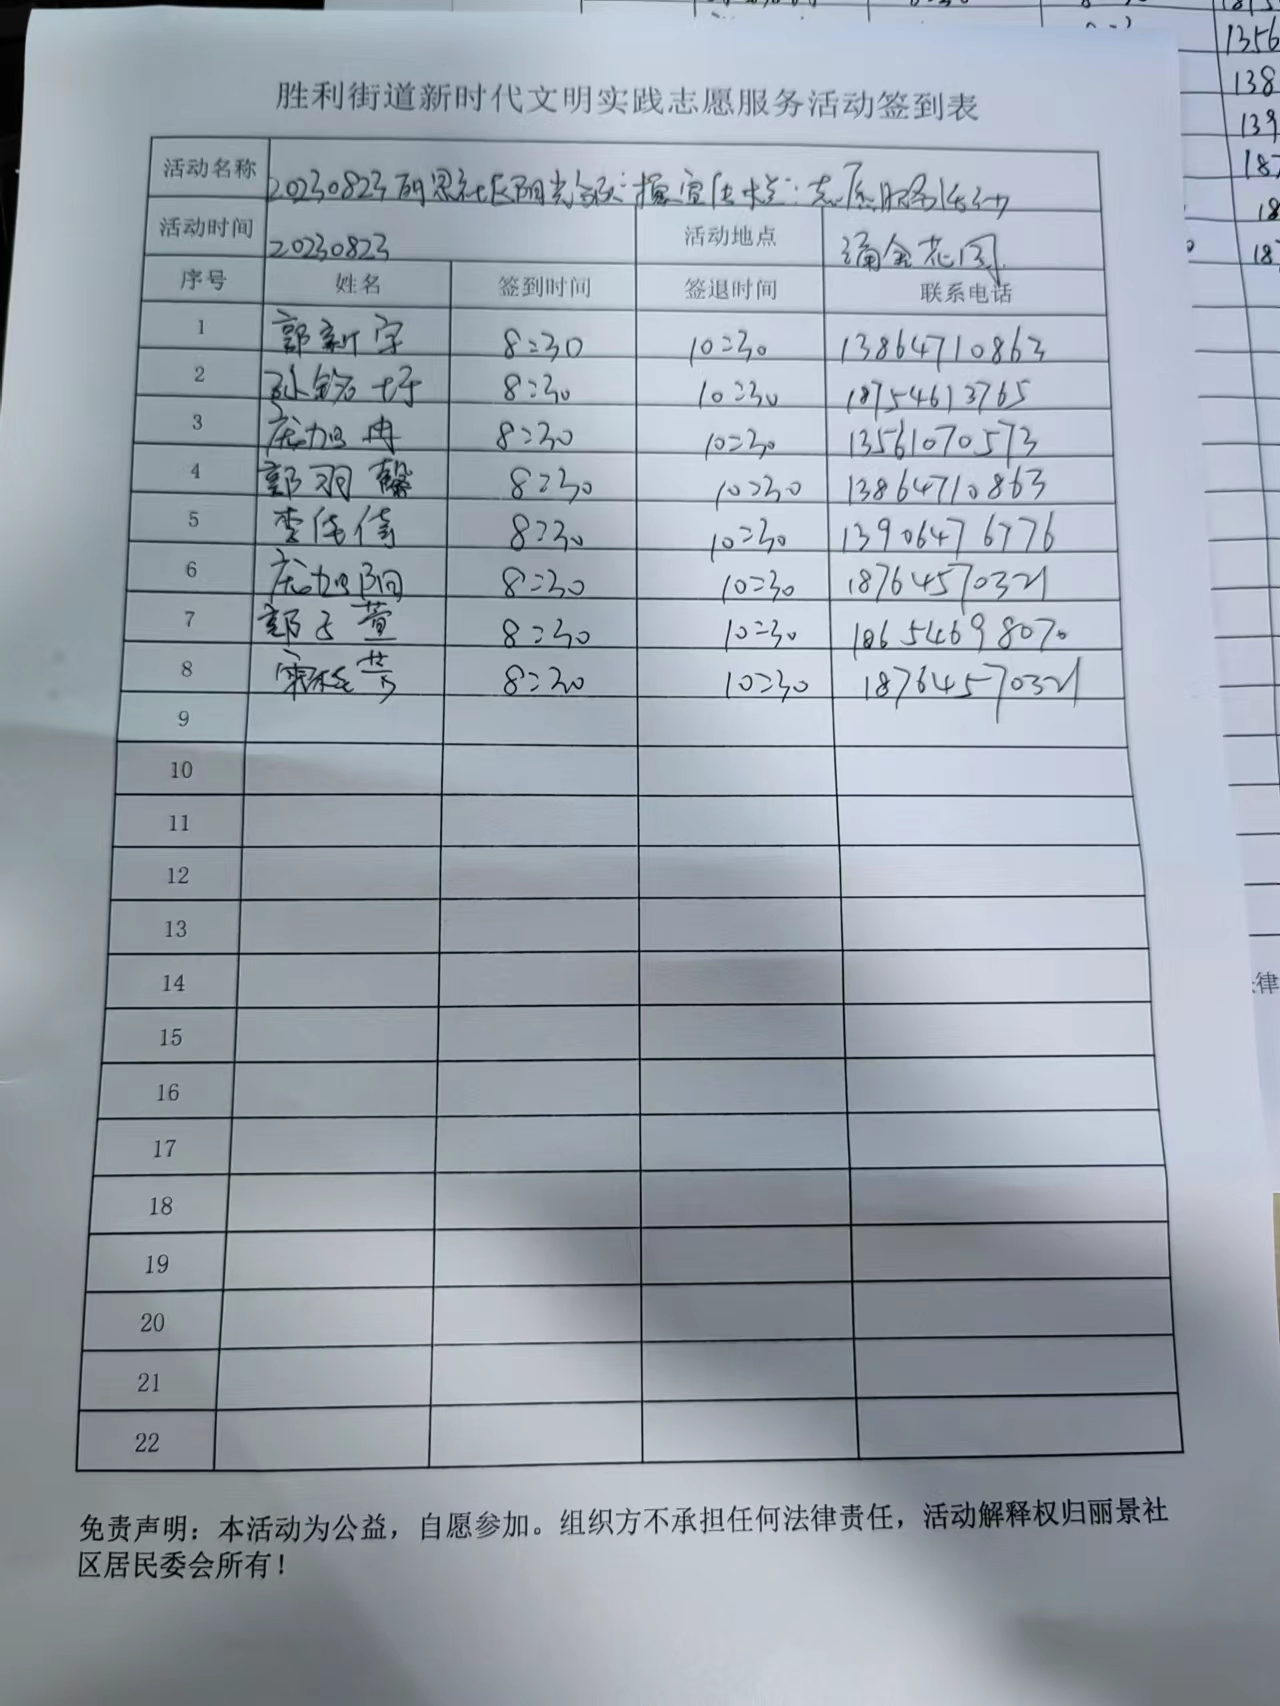 胜利街道新时代文明实践志愿服务活动签到表
活动名称 20230823丽景社区阳光 志愿服务活动
活动时间 20230823 活动地点 涌金花园
序号 姓名 签到时间 签退时间 联系电话
1 郭新宇 8:30 10:30 13864710863
2 孙铭 8:30 10:30 18754613765
3 庞旭冉 8:30 10:30 13561070573
4 郭羽馨 8:30 10:30 13864710863
5 李佳倩 8:30 10:30 13906476776
6 庞旭阳 8:30 10:30 18764570321
7 郭子萱 8:30 10:30 18654698070
8 8:30 10:30 18764570321
9
10
11
12
13
14
15
16
17
18
19
20
21
22
免责声明：本活动为公益，自愿参加。组织方不承担任何法律责任，活动解释权归丽景社
区居民委会所有！
1356
138
139
187
18
187
律